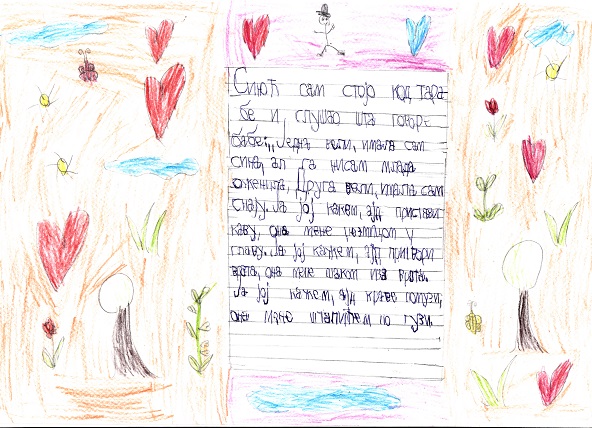 Синоћ сам стојо код тара
бе и слушао шта говоре
бабе:,,Једна вели, имала сам
сина, ал га нисам млада
оженила, Друга вели, имала сам
снају. Ја јој кажем, ајд пристави
каву, она мене џезвицом у
главу. Ја јој кажем, ајд притвори
врата, она мене шаком иза врата.
Ја јој кажем, ајд краве помузи,
она мене штапићем по гузи.